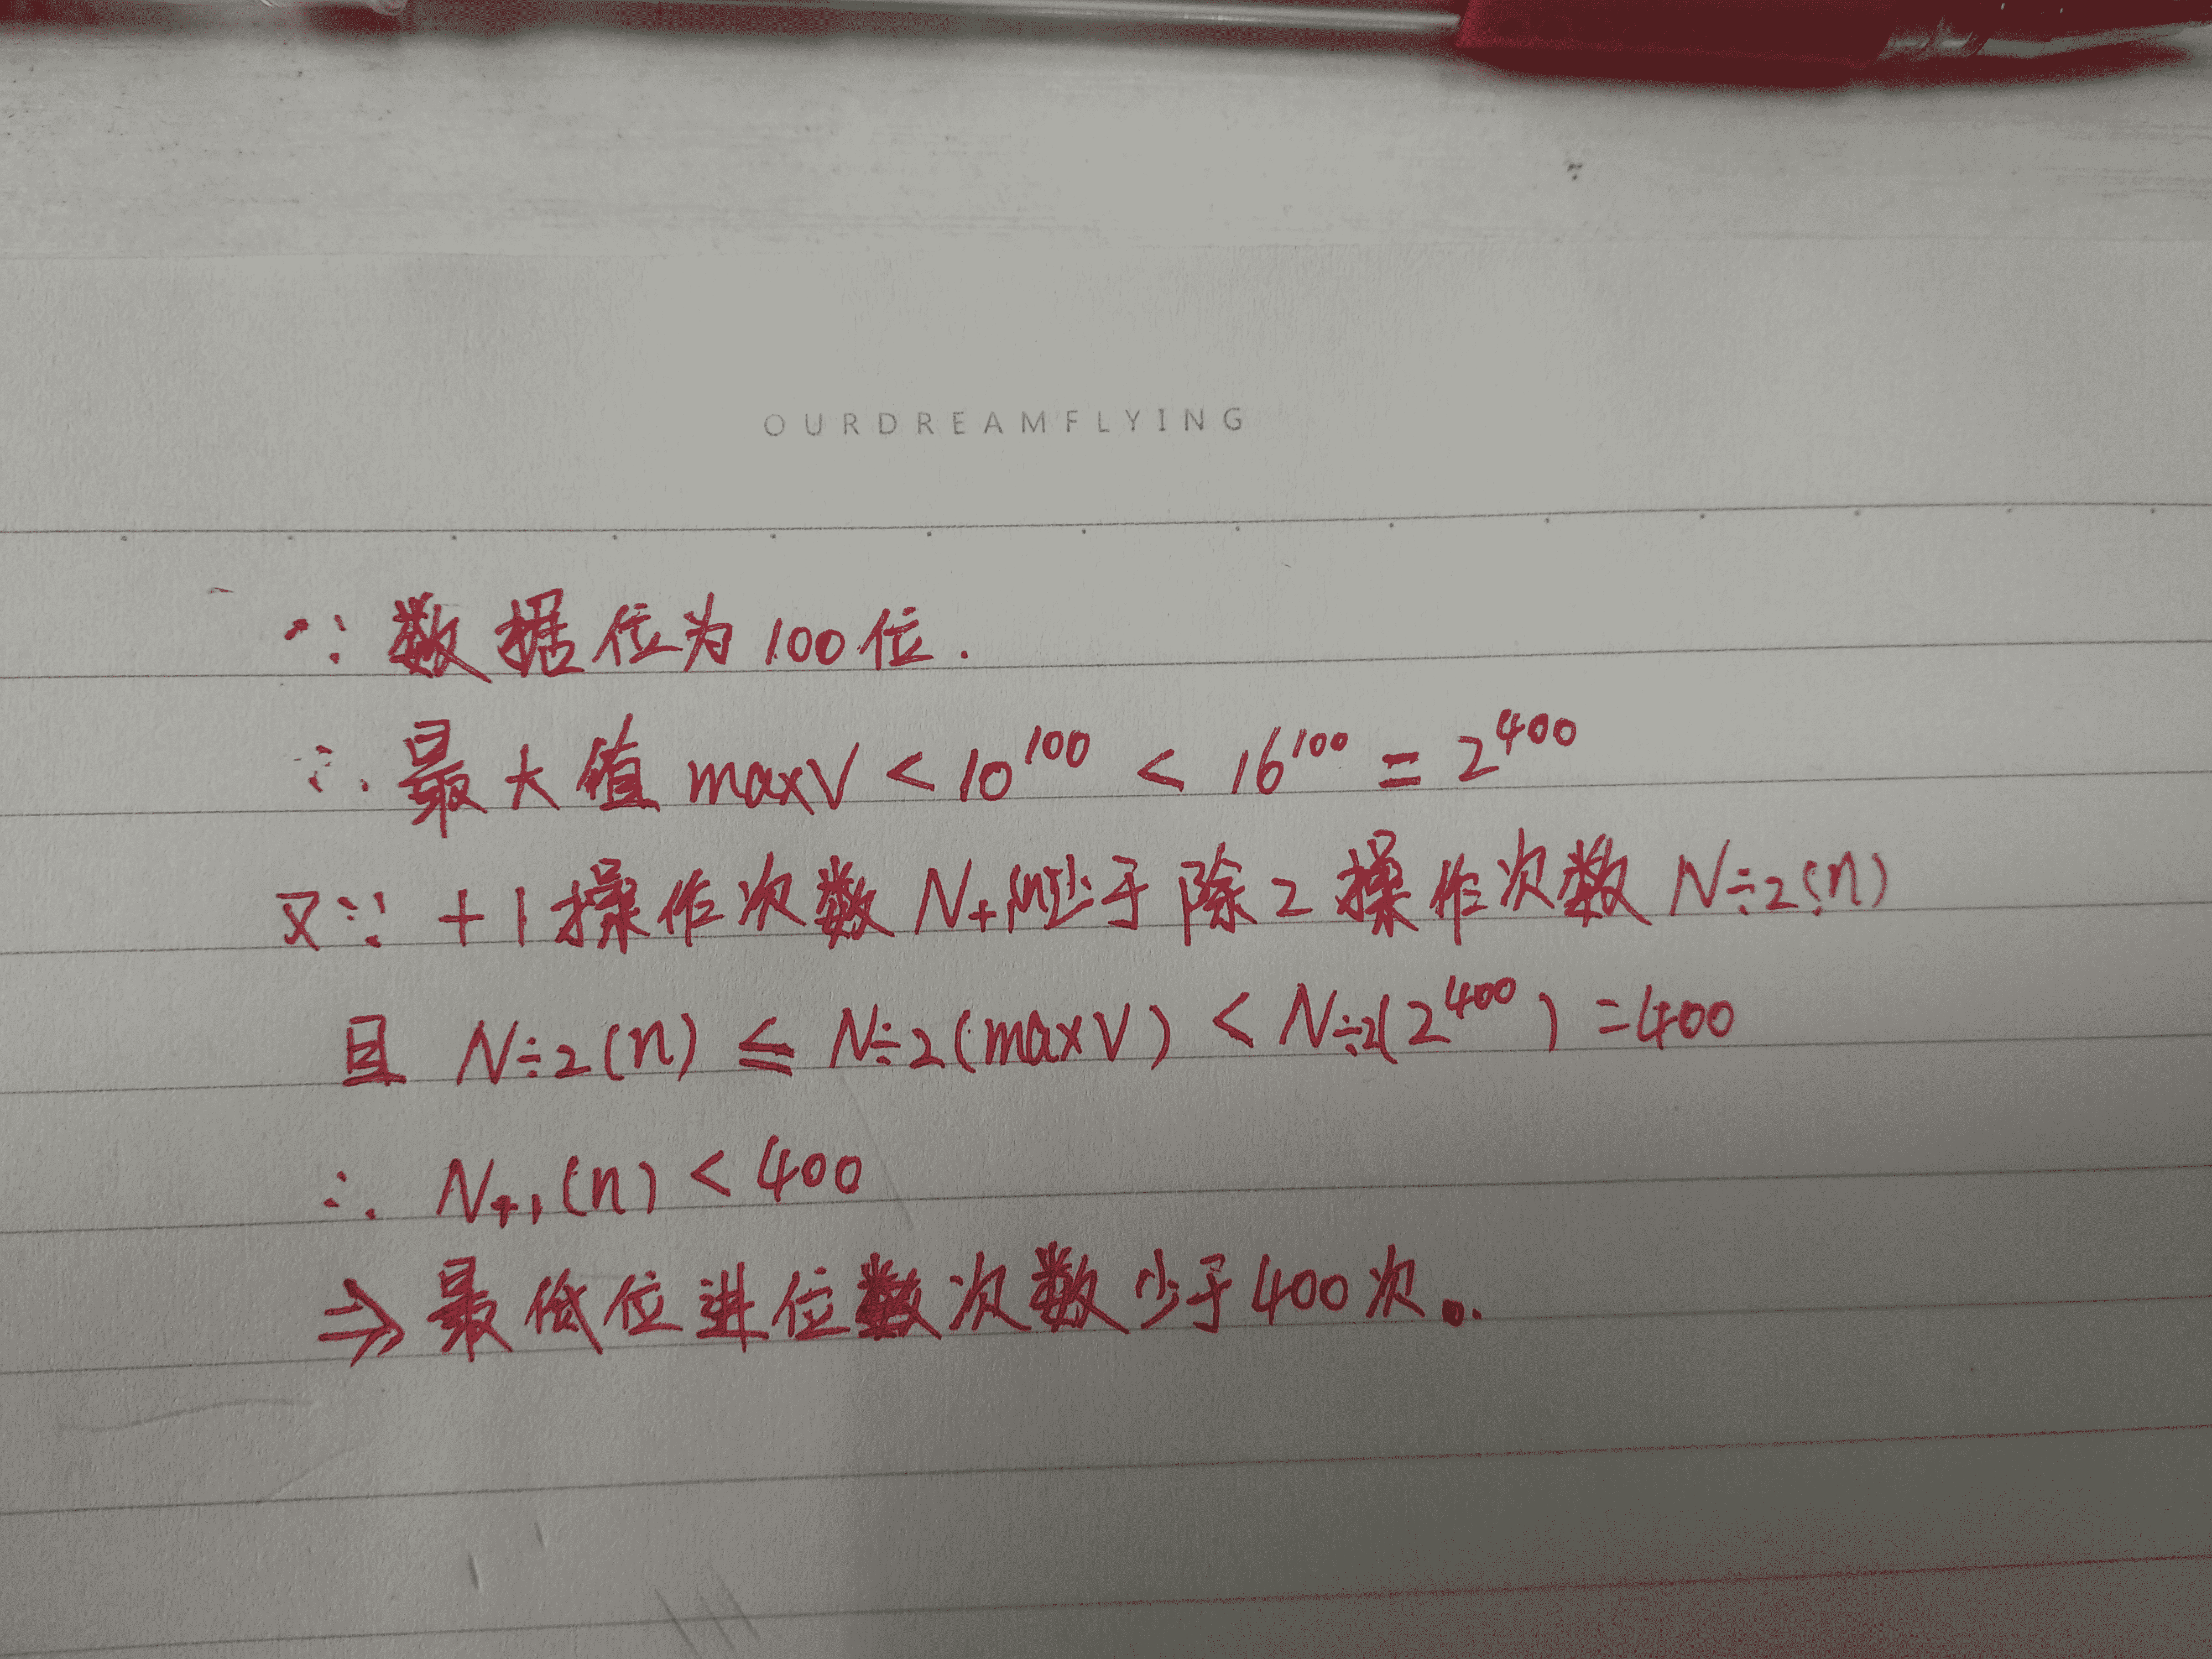 OURDREAMFLYING
∵ 数据位为100位.
∴ 最大值 maxV < 10^100 < 16^100 = 2^400
又∵ +1操作次数 N+1(n)少于 除2操作次数 N÷2(n)
且 N÷2(n) ≤ N÷2(maxV) < N÷2(2^400) = 400
∴ N+1(n) < 400
⇒ 最低位进位数次数少于400次。